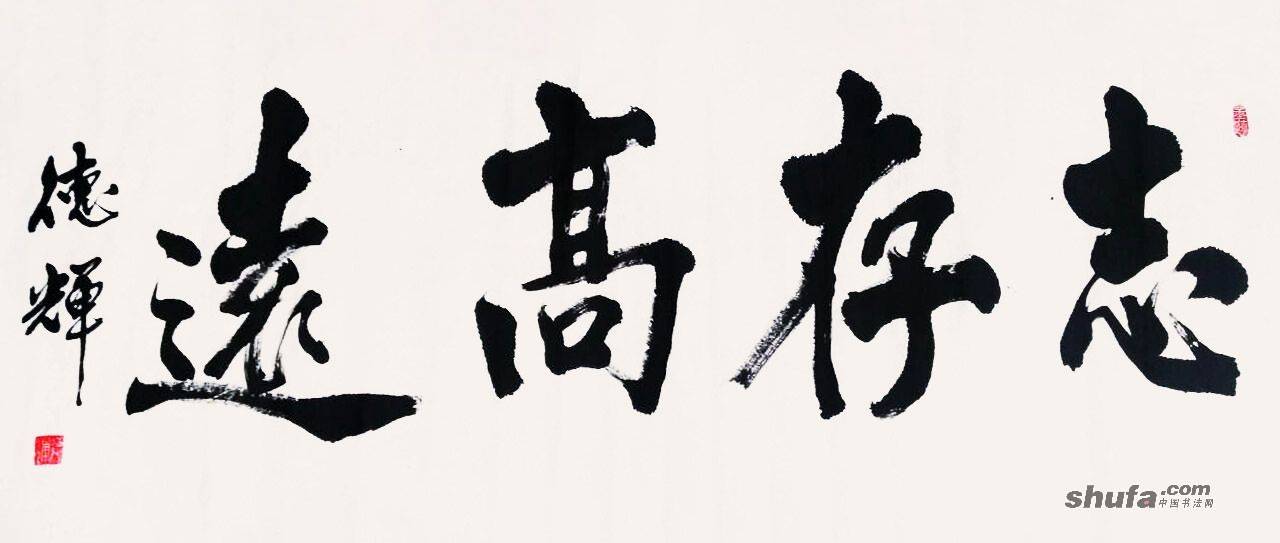 志存高遠
德輝
shufa.com
中国书法网